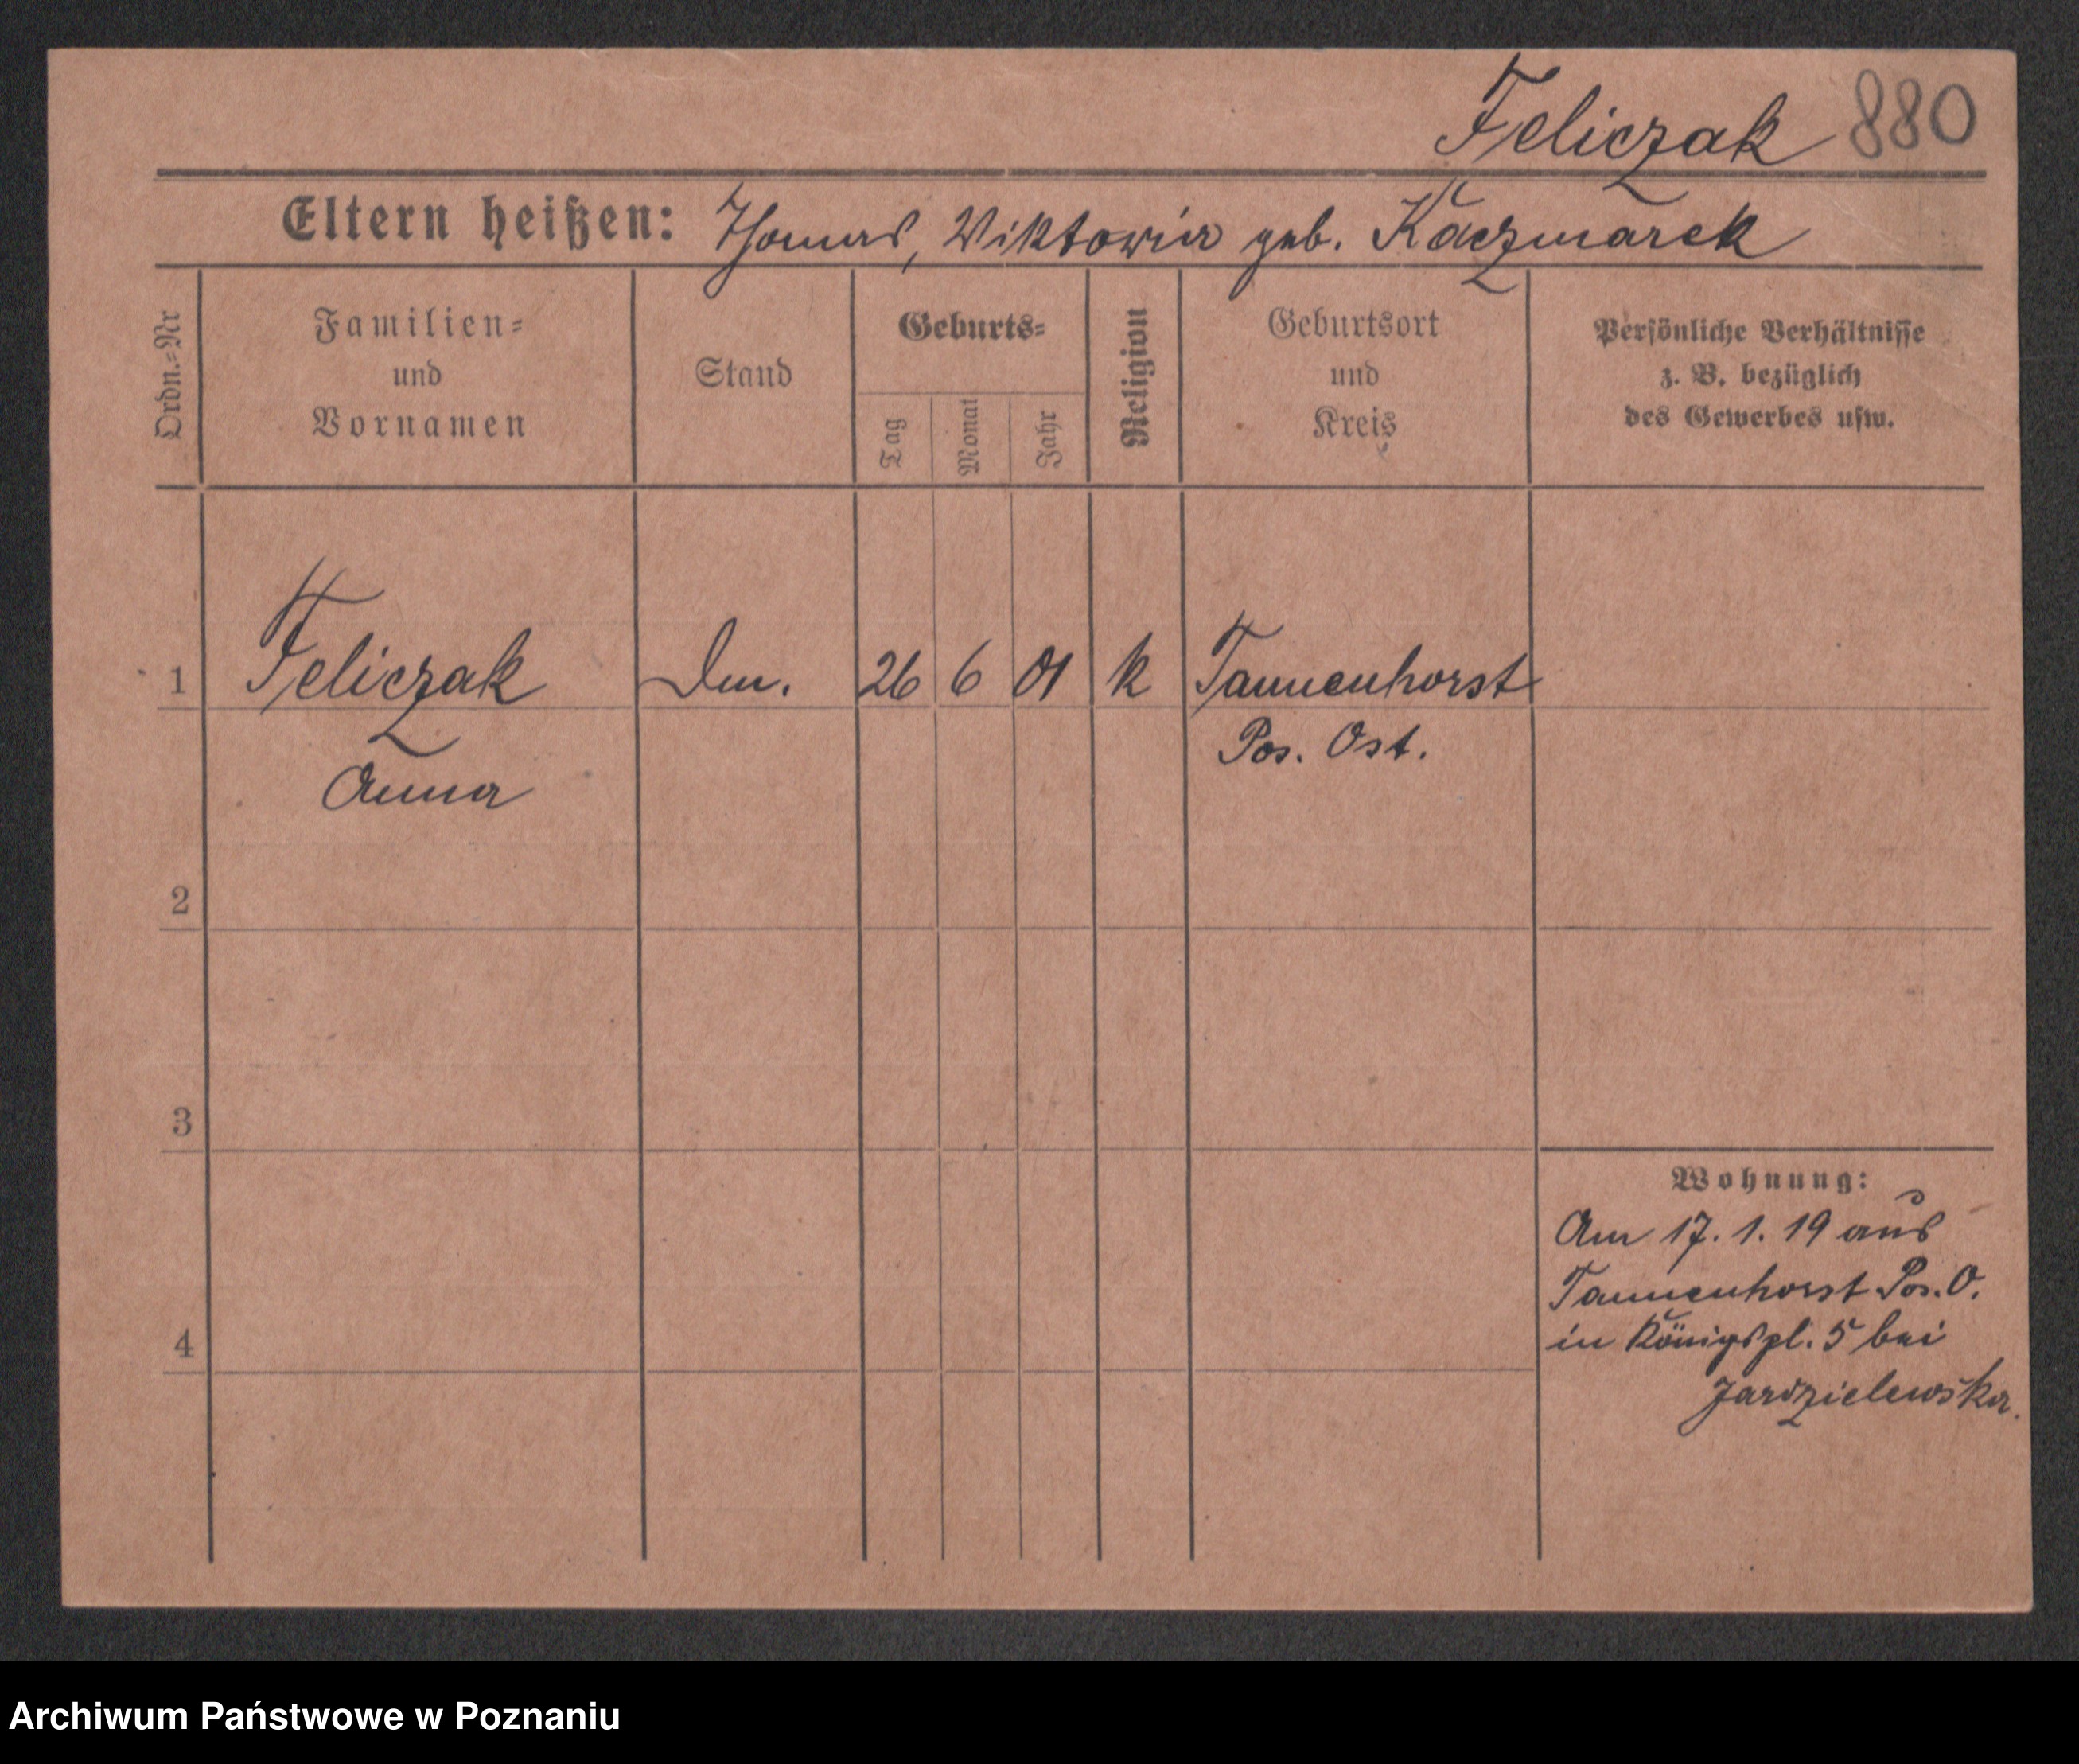 Feliczak 880
Eltern heißen: Thomas, Viktoria geb. Kaczmarek
Ordn.-Nr
Familien-
und
Vornamen
Stand
Geburts-
Tag
Monat
Jahr
Religion
Geburtsort
und
Kreis
Persönliche Verhältnisse
z. B. bezüglich
des Gewerbes usw.
1 Feliczak 26 6 01 k Tannenhorst
Pos. Ost.
Anna
2
3
Wohnung:
Am 17. 1. 19 aus
Tannenhorst Pos. O.
4 in Königspl. 5 bei
Archiwum Państwowe w Poznaniu